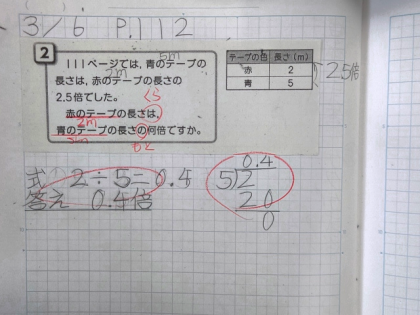 3/6 P.112
2
5m
111ページでは，青のテープの
2m
長さは，赤のテープの長さの
2.5倍でした。
くら
赤のテープの長さは，
2m
青のテープの長さの何倍ですか。
5m
もと
テープの色 長さ(m)
赤 2
青 5
2.5倍
式 2÷5=0.4
答え 0.4倍
0.4
5)2
20
0